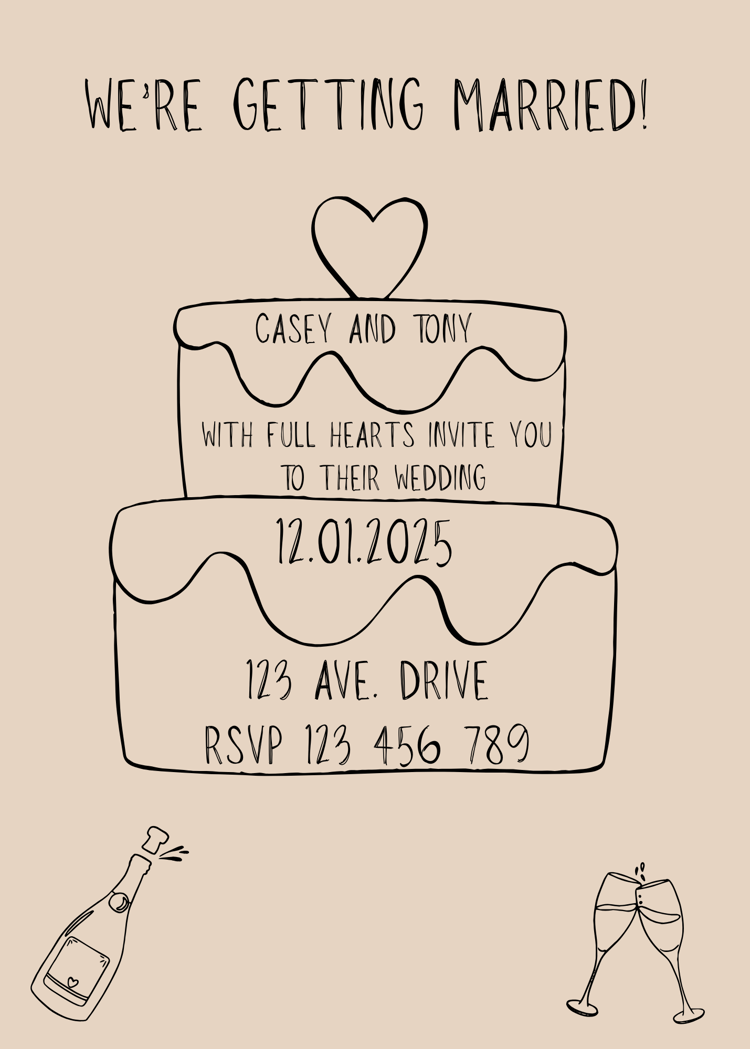 WE'RE GETTING MARRIED!
CASEY AND TONY
WITH FULL HEARTS INVITE YOU
TO THEIR WEDDING
12.01.2025
123 AVE. DRIVE
RSVP 123 456 789